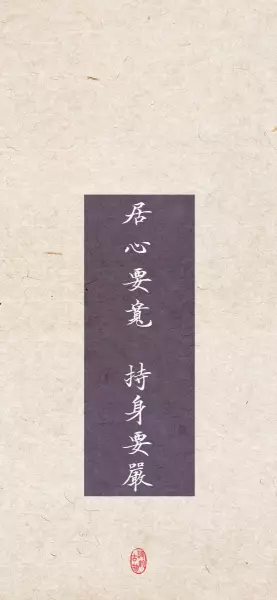 居心要寬 持身要嚴